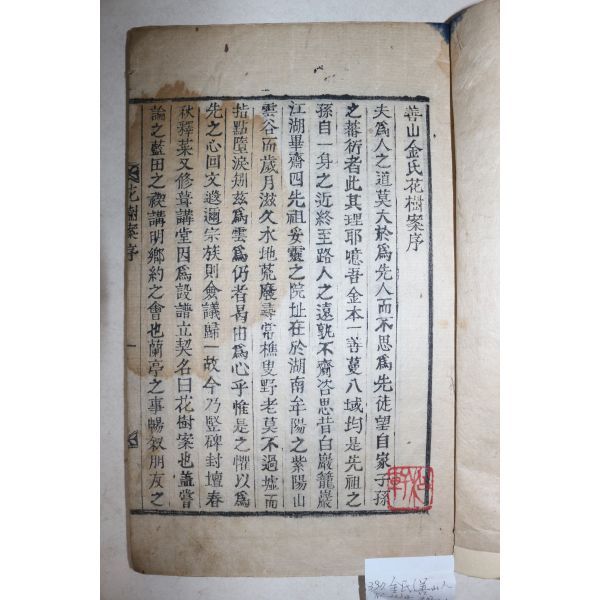 善山金氏花樹案序
夫爲人之道莫大於爲先人而不思爲先徒望自家子孫
之蕃衍者此其理耶噫吾金本一善蔓八域均是先祖之
孫自一身之近終至路人之遠孰不齎咨思昔白巖籠巖
江湖畢齋四先祖妥靈之院址在於湖南牟陽之紫陽山
雲谷而歲月滋久水地荒廢尋常樵叟野老莫不過墟而
指點墮淚矧玆爲雲爲仍者曷由爲心乎惟是之懼以爲
先之心回文遐邇宗族則僉議歸一故今乃竪碑封壇春
秋釋菜又修葺講堂因爲設譜立契名曰花樹案也蓋嘗
論之藍田之禊講明鄕約之會也蘭亭之事暢敍朋友之
花樹案序
一
380 金氏(善山)